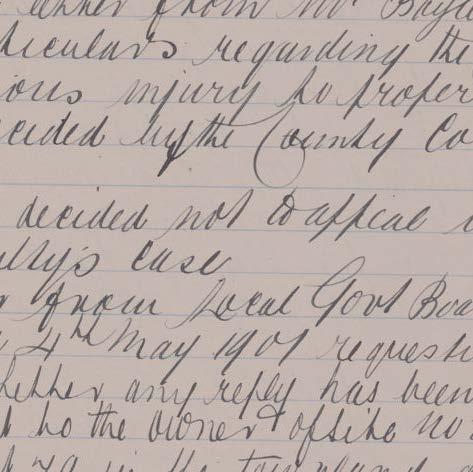 letter from Mr Bayl
ticulars regarding the
ious injury to proper
cided by the County Co
decided not to appeal
ulty's case
from Local Govt Boa
4th May 1901 requesti
hether any reply has been
d to the owner of site no.
in the townland